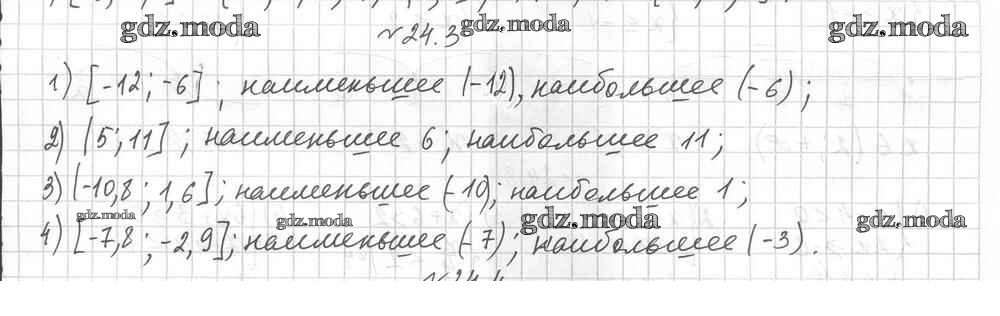 gdz.moda gdz.moda gdz.moda
№24.3
1) [-12; -6]; наименьшее (-12), наибольшее (-6);
2) (5; 11]; наименьшее 6; наибольшее 11;
3) (-10,8; 1,6]; наименьшее (-10); наибольшее 1;
gdz.moda gdz.moda gdz.moda gdz.moda
4) [-7,8; -2,9]; наименьшее (-7); наибольшее (-3).